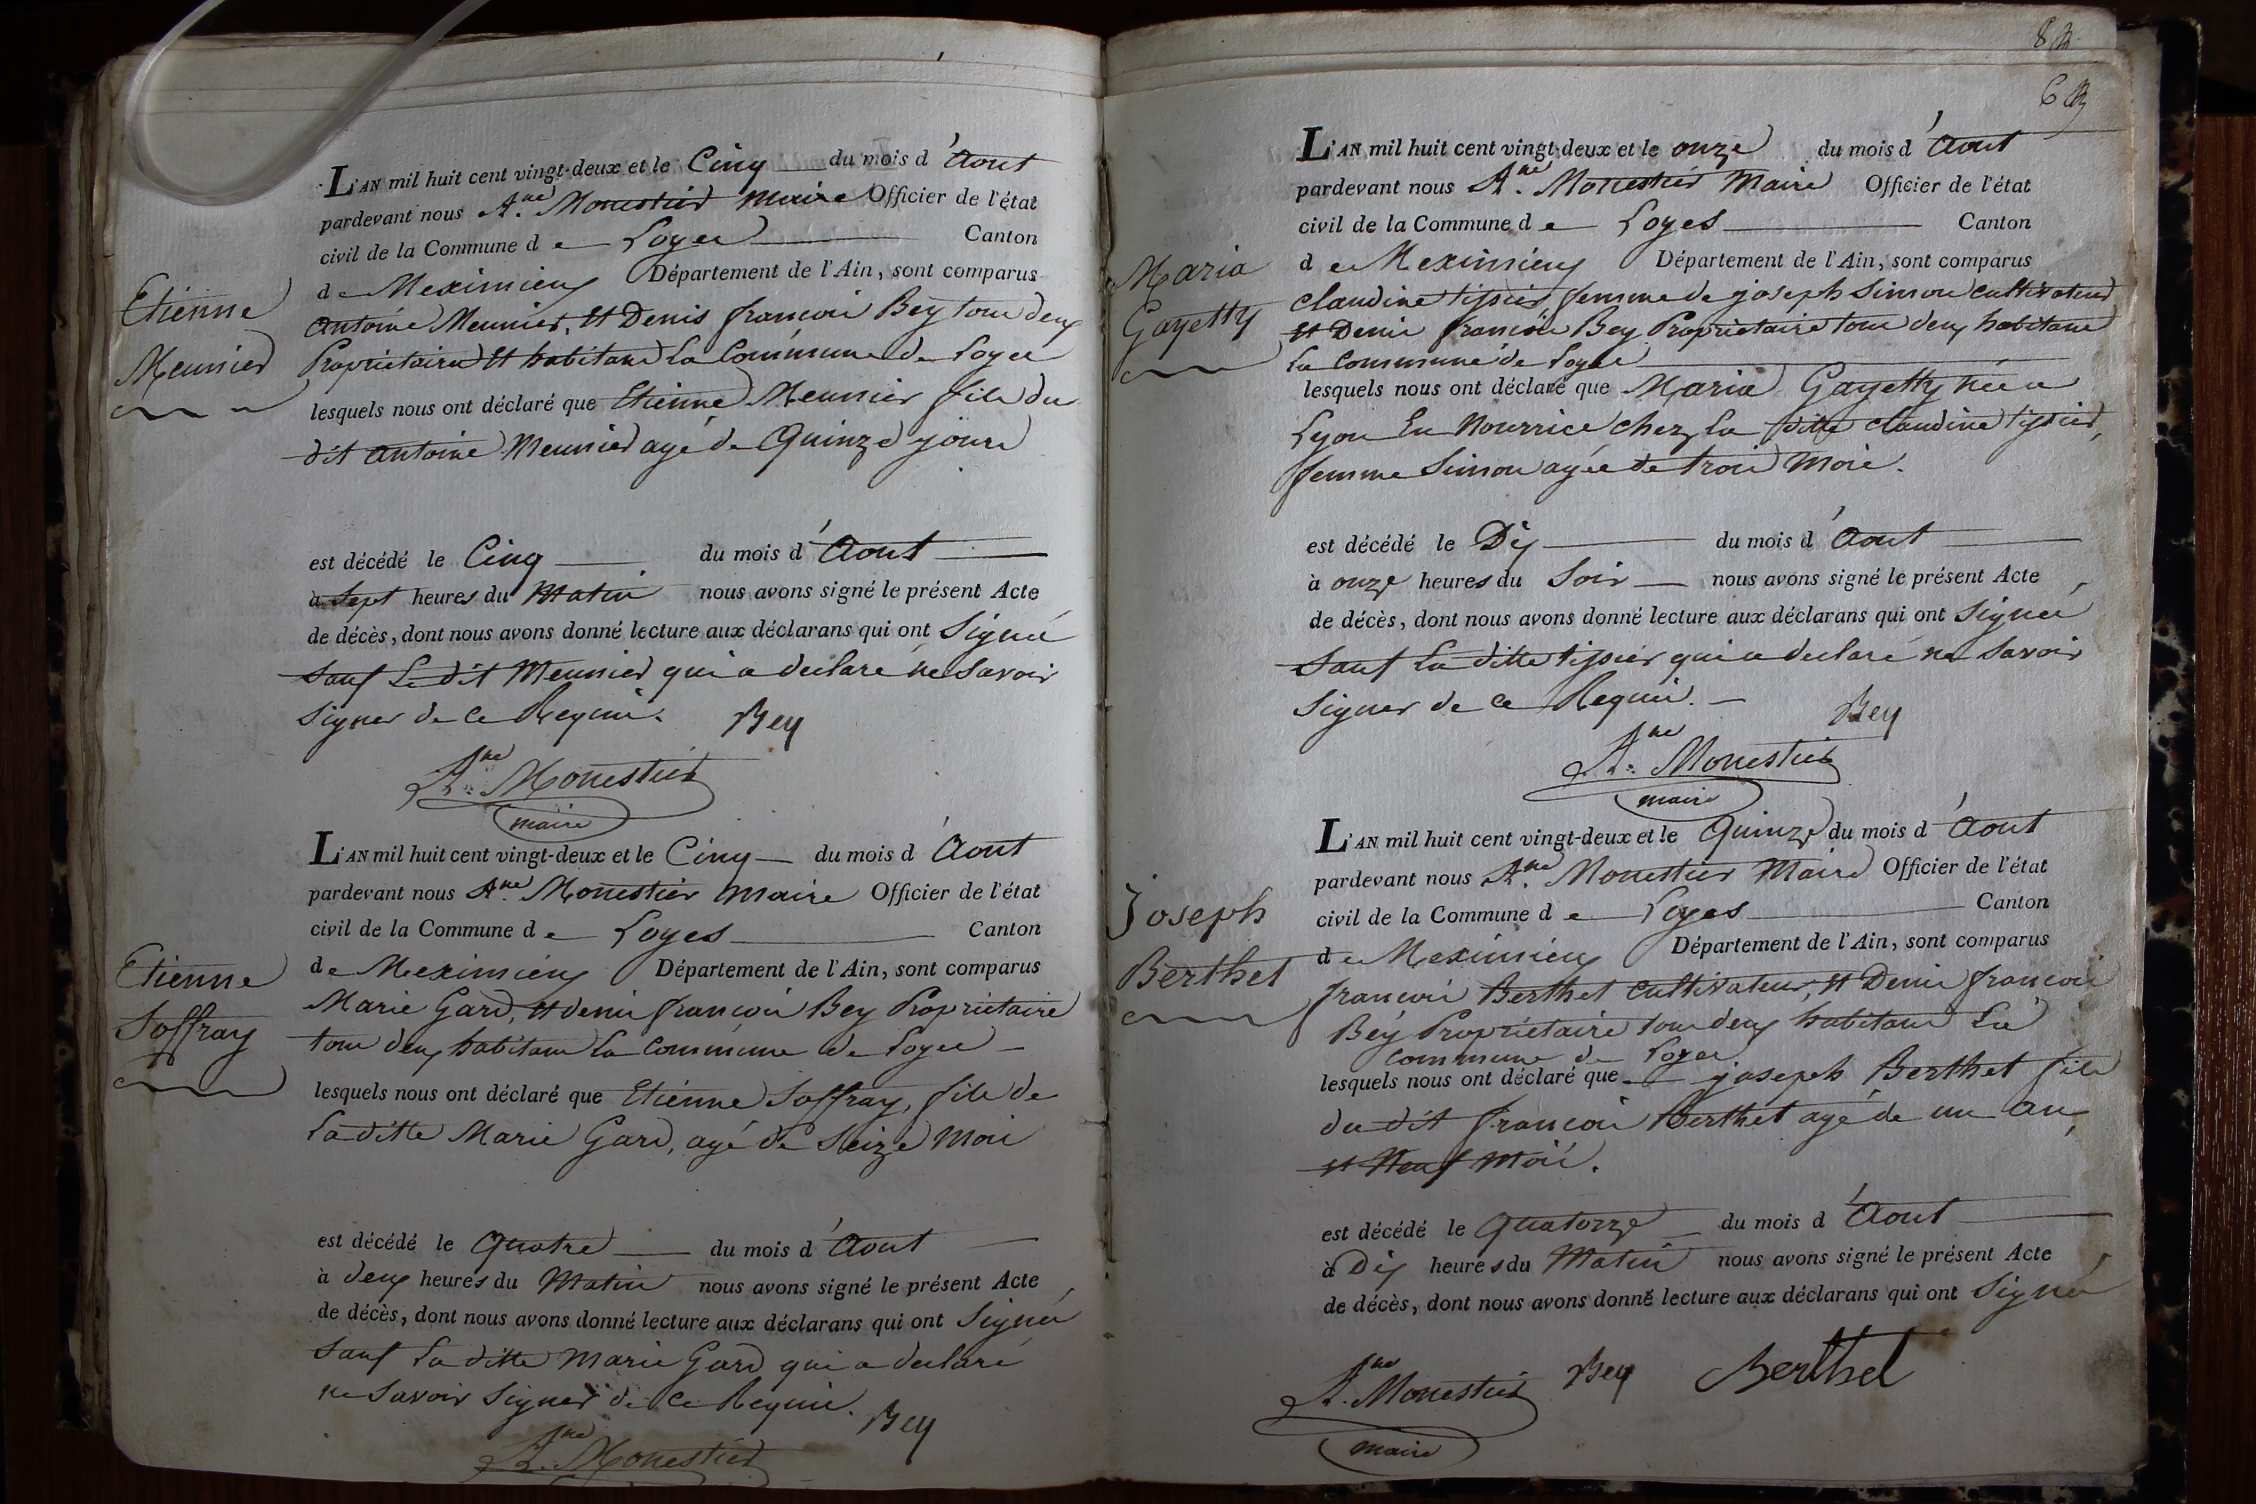 L'AN mil huit cent vingt-deux et le Cinq du mois d'Aout
pardevant nous A.ne Monestier Maire Officier de l'état
civil de la Commune de Loyes Canton
de Meximieux Département de l'Ain, sont comparus
Etienne
Meunier
antoine Meunier, Et Denis françois Bey tous deux
Proprietaires Et habitans la Commune de Loyes
lesquels nous ont déclaré que Etienne Meunier fils du
dit antoine Meunier agé de Quinze jours
est décédé le Cinq du mois d'Aout
à Sept heures du Matin nous avons signé le présent Acte
de décès, dont nous avons donné lecture aux déclarans qui ont Signés
Sauf Le dit Meunier qui a declaré ne Savoir
Signer de ce Requis. Bey
A.ne Monestier
maire
L'AN mil huit cent vingt-deux et le Cinq du mois d'Aout
pardevant nous A.ne Monestier Maire Officier de l'état
civil de la Commune de Loyes Canton
de Meximieux Département de l'Ain, sont comparus
Etienne
Soffray
Marie Gard, Et denis françois Bey Proprietaire
tous deux habitans la Commune de Loyes
lesquels nous ont déclaré que Etienne Soffray, fils de
La ditte Marie Gard, agé de Seize Mois
est décédé le Quatre du mois d'Aout
à deux heures du Matin nous avons signé le présent Acte
de décès, dont nous avons donné lecture aux déclarans qui ont Signés
Sauf La ditte Marie Gard qui a declaré
ne Savoir Signer de Ce Requis. Bey
A.ne Monestier
L'AN mil huit cent vingt-deux et le onze du mois d'Aout
pardevant nous A.ne Monestier Maire Officier de l'état
civil de la Commune de Loyes Canton
de Meximieux Département de l'Ain, sont comparus
Maria
Gayetty
Claudine tissier femme de joseph Simon cultivateur
Et Denis françois Bey Proprietaire tous deux habitans
La Commune de Loyes
lesquels nous ont déclaré que Maria Gayetty née a
Lyon En Nourrice chez La ditte Claudine tissier,
femme Simon agée de trois Mois.
est décédé le Dix du mois d'Aout
à onze heures du Soir nous avons signé le présent Acte
de décès, dont nous avons donné lecture aux déclarans qui ont Signés
Sauf La ditte tissier qui a declaré ne Savoir
Signer de ce Requis. Bey
A.ne Monestier
maire
L'AN mil huit cent vingt-deux et le Quinze du mois d'Aout
pardevant nous A.ne Monestier Maire Officier de l'état
civil de la Commune de Loyes Canton
de Meximieux Département de l'Ain, sont comparus
Joseph
Berthet
françois Berthet cultivateur, Et Denis françois
Bey Proprietaire tous deux habitans La
Commune de Loyes
lesquels nous ont déclaré que joseph Berthet fils
du dit françois Berthet agé de un an,
Et Neuf Mois.
est décédé le Quatorze du mois d'Aout
à Dix heures du Matin nous avons signé le présent Acte
de décès, dont nous avons donné lecture aux déclarans qui ont Signés
A.ne Monestier Bey Berthet
maire